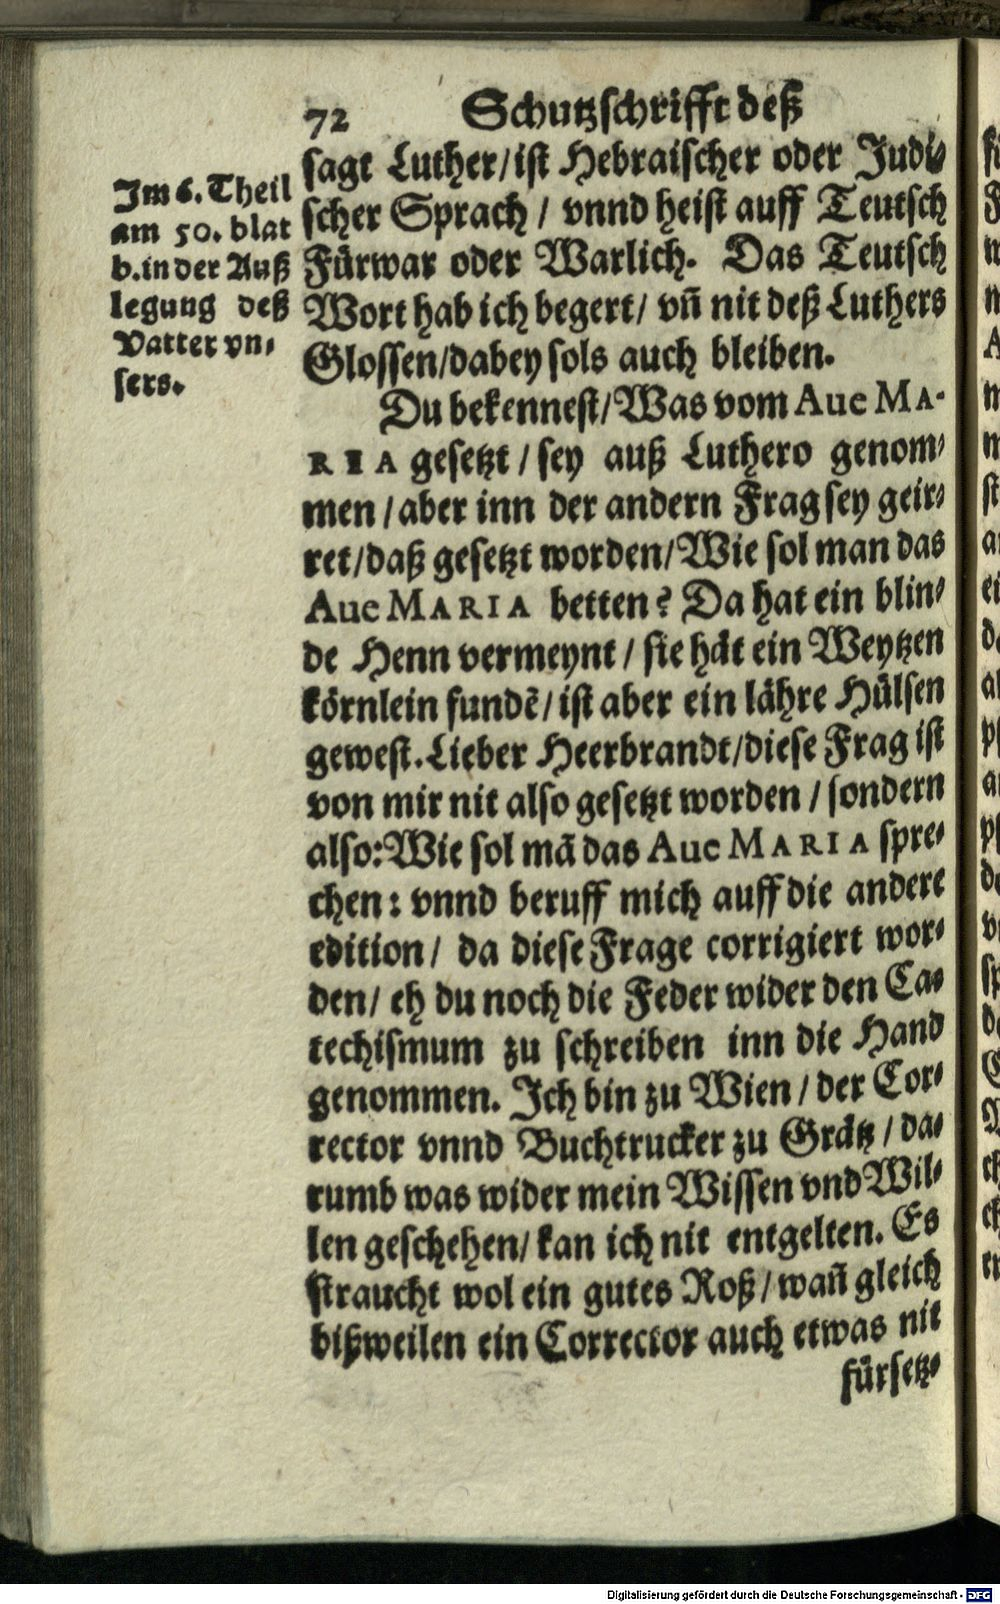 72 Schutzschrifft deß
Im 6. Theil
am 50. blat
b. in der Auß
legung deß
Vatter vn⸗
sers.
sagt Luther/ ist Hebraischer oder Judi⸗
scher Sprach / vnnd heist auff Teutsch
Fürwar oder Warlich. Das Teutsch
Wort hab ich begert/ vñ nit deß Luthers
Glossen/dabey sols auch bleiben.
Du bekennest/ Was vom Aue MA-
RIA gesetzt / sey auß Luthero genom⸗
men / aber inn der andern Frag sey geir⸗
ret/ daß gesetzt worden/ Wie sol man das
Aue MARIA betten? Da hat ein blin⸗
de Henn vermeynt / sie hät ein Weytzen
körnlein fundẽ/ ist aber ein lähre Hülsen
gewest. Lieber Heerbrandt/diese Frag ist
von mir nit also gesetzt worden / sondern
also: Wie sol mã das Aue MARIA spre⸗
chen: vnnd beruff mich auff die andere
edition/ da diese Frage corrigiert wor⸗
den/ eh du noch die Feder wider den Ca⸗
techismum zu schreiben inn die Hand
genommen. Ich bin zu Wien / der Cor⸗
rector vnnd Buchtrucker zu Grätz / da⸗
rumb was wider mein Wissen vnd Wil⸗
len geschehen/ kan ich nit entgelten. Es
straucht wol ein gutes Roß / wañ gleich
bißweilen ein Corrector auch etwas nit
fürsetz⸗
Digitalisierung gefördert durch die Deutsche Forschungsgemeinschaft - DFG